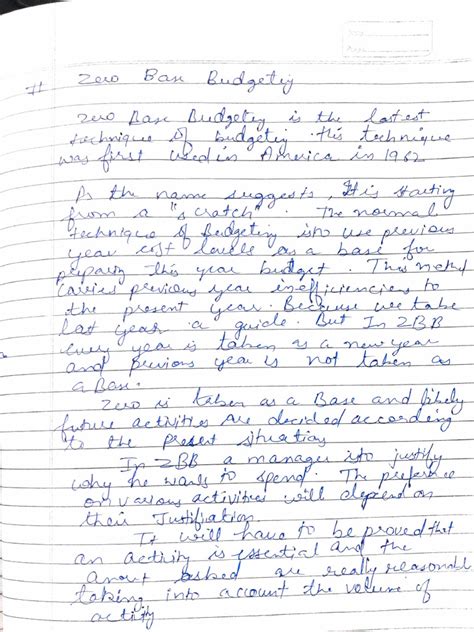 # Zero Base Budgeting
Zero Base Budgeting is the lastest
technique of budgeting. This technique
was first used in America in 1962
As the name suggests, It is starting
from a "scratch". The normal
technique of Budgeting is to use previous
year cost levels as a base for
preparing this year budget. This method
carries previous year inefficiencies to
the present year. Because we take
last year a guide. But In ZBB
every year is taken as a new year
and previous year is not taken as
a Base.
Zero is taken as a Base and likely
future activities are decided according
to the present situations
In ZBB a manager is to justify
why he wants to spend. The preference
on various activities will depend on
their Justification.
It will have to be proved that
an activity is essential and the
amout asked are really reasonable
taking into account the volume of
activity